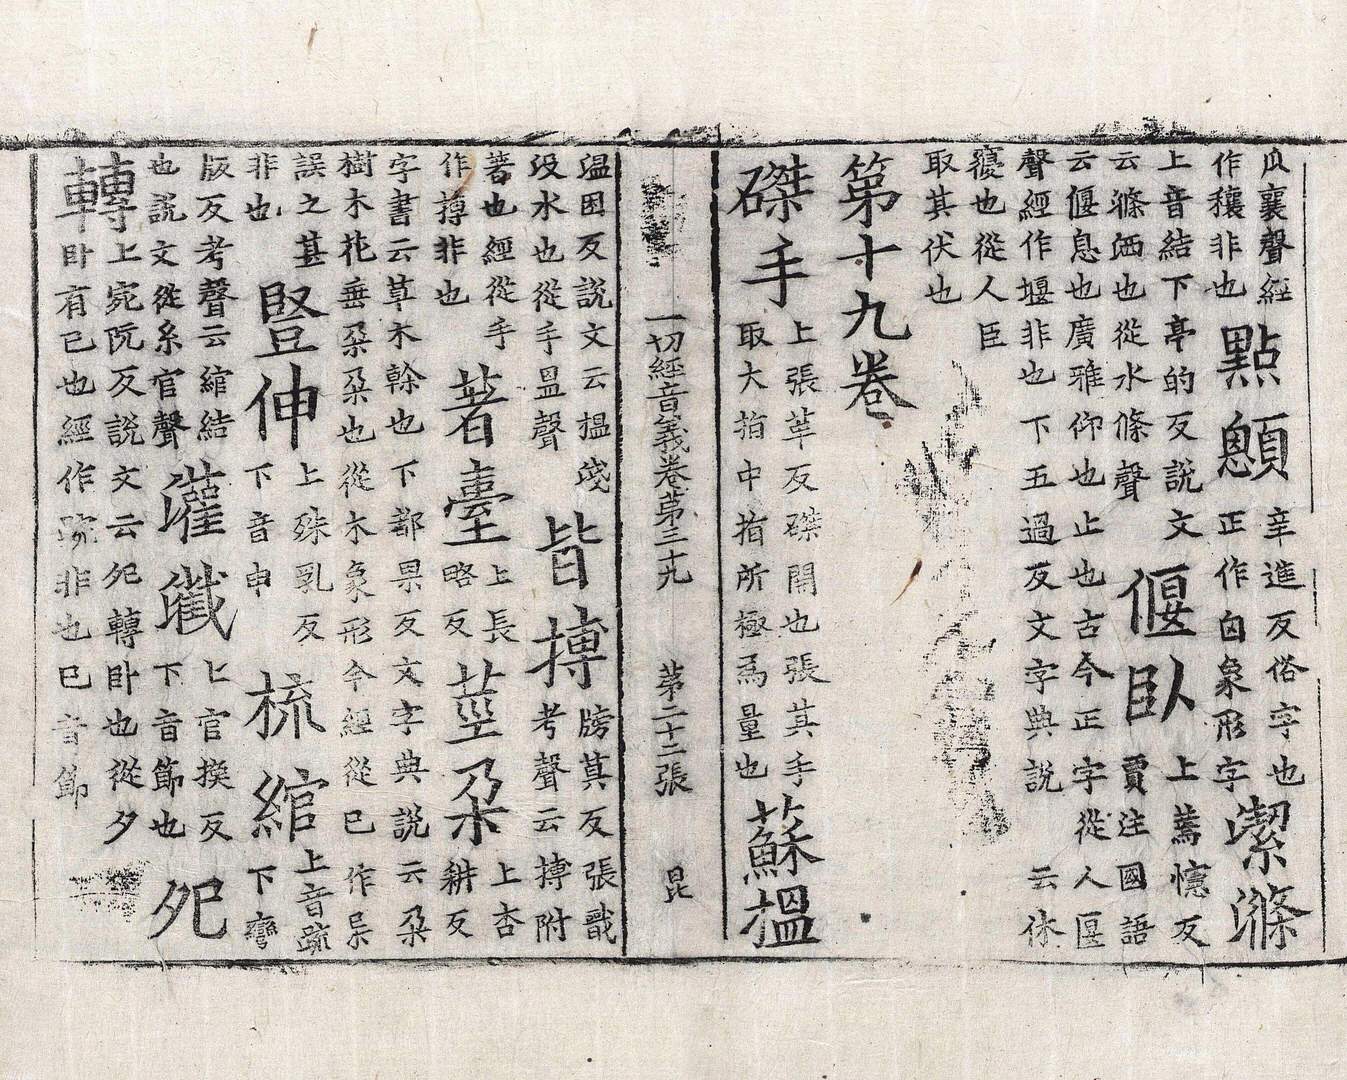 瓜襄聲經
作穰非也
點顖
辛進反俗字也
正作囟象形字
潔滌
上音結下亭的反說文
云滌洒也從水條聲
偃臥
上蔫幰反
賈注國語
云偃息也廣雅仰也止也古今正字從人匽
聲經作堰非也下五過反文字典說 云休
寢也從人臣
取其伏也
第十九卷
磔手
上張革反磔開也張其手
取大指中指所極爲量也
蘇搵
一切經音義卷第三十九 第二十二張 昆
溫困反說文云搵
沒水也從手昷聲
皆搏
牓莫反張戩
考聲云搏附
著也經從手
作摶非也
著臺
上長
略反
莖朵
上杏
耕反
字書云草木幹也下都果反文字典說云朵
樹木花垂朵朵也從木象形今經從已作
誤之甚
非也
豎伸
上殊乳反
下音申
梳綰
上音疏
下彎
版反考聲云綰結
也說文從糸官聲
灌
上官換反
下音節也
夗
轉
上宛阮反說文云夗轉臥也從夕
臥有㔾也經作踠非也㔾音節